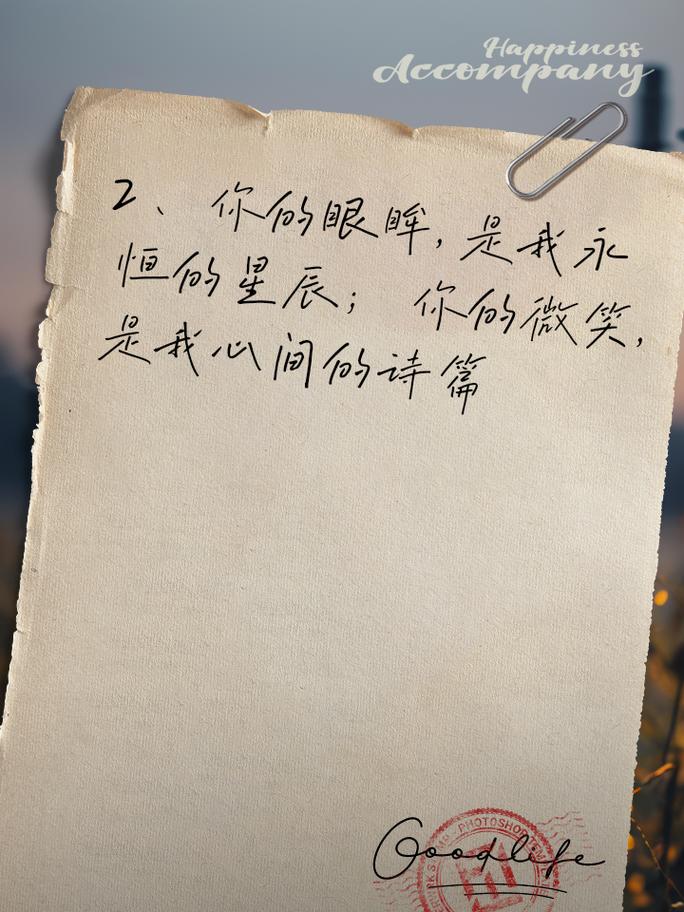 Happiness
Accompany
2、你的眼眸,是我永
恒的星辰;你的微笑,
是我心间的诗篇
PHOTOSHOP
Goodlife